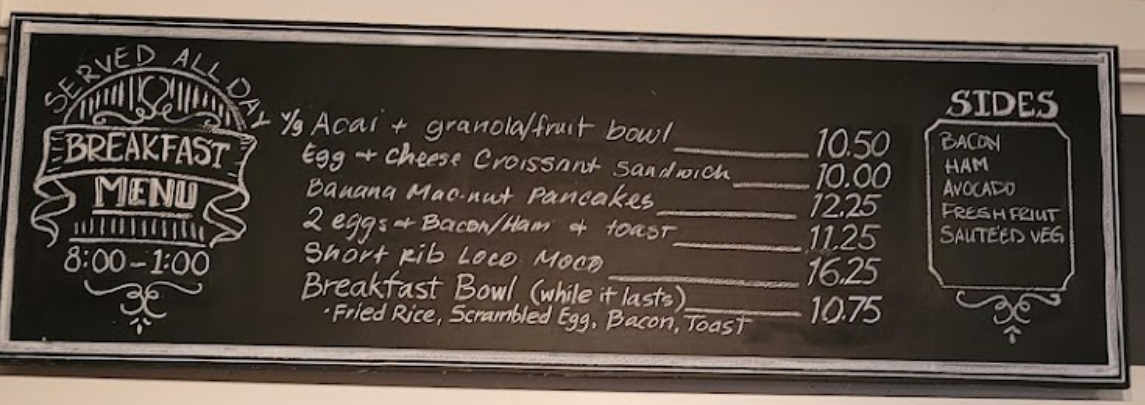 SERVED ALL DAY
BREAKFAST
MENU
8:00-1:00
V/g Acai + granola/fruit bowl 10.50
Egg + Cheese Croissant Sandwich 10.00
Banana Mac-nut Pancakes 12.25
2 eggs + Bacon/Ham + toast 11.25
Short Rib Loco Moco 16.25
Breakfast Bowl (while it lasts) 10.75
·Fried Rice, Scrambled Egg, Bacon, Toast
SIDES
BACON
HAM
AVOCADO
FRESH FRIUT
SAUTÉED VEG